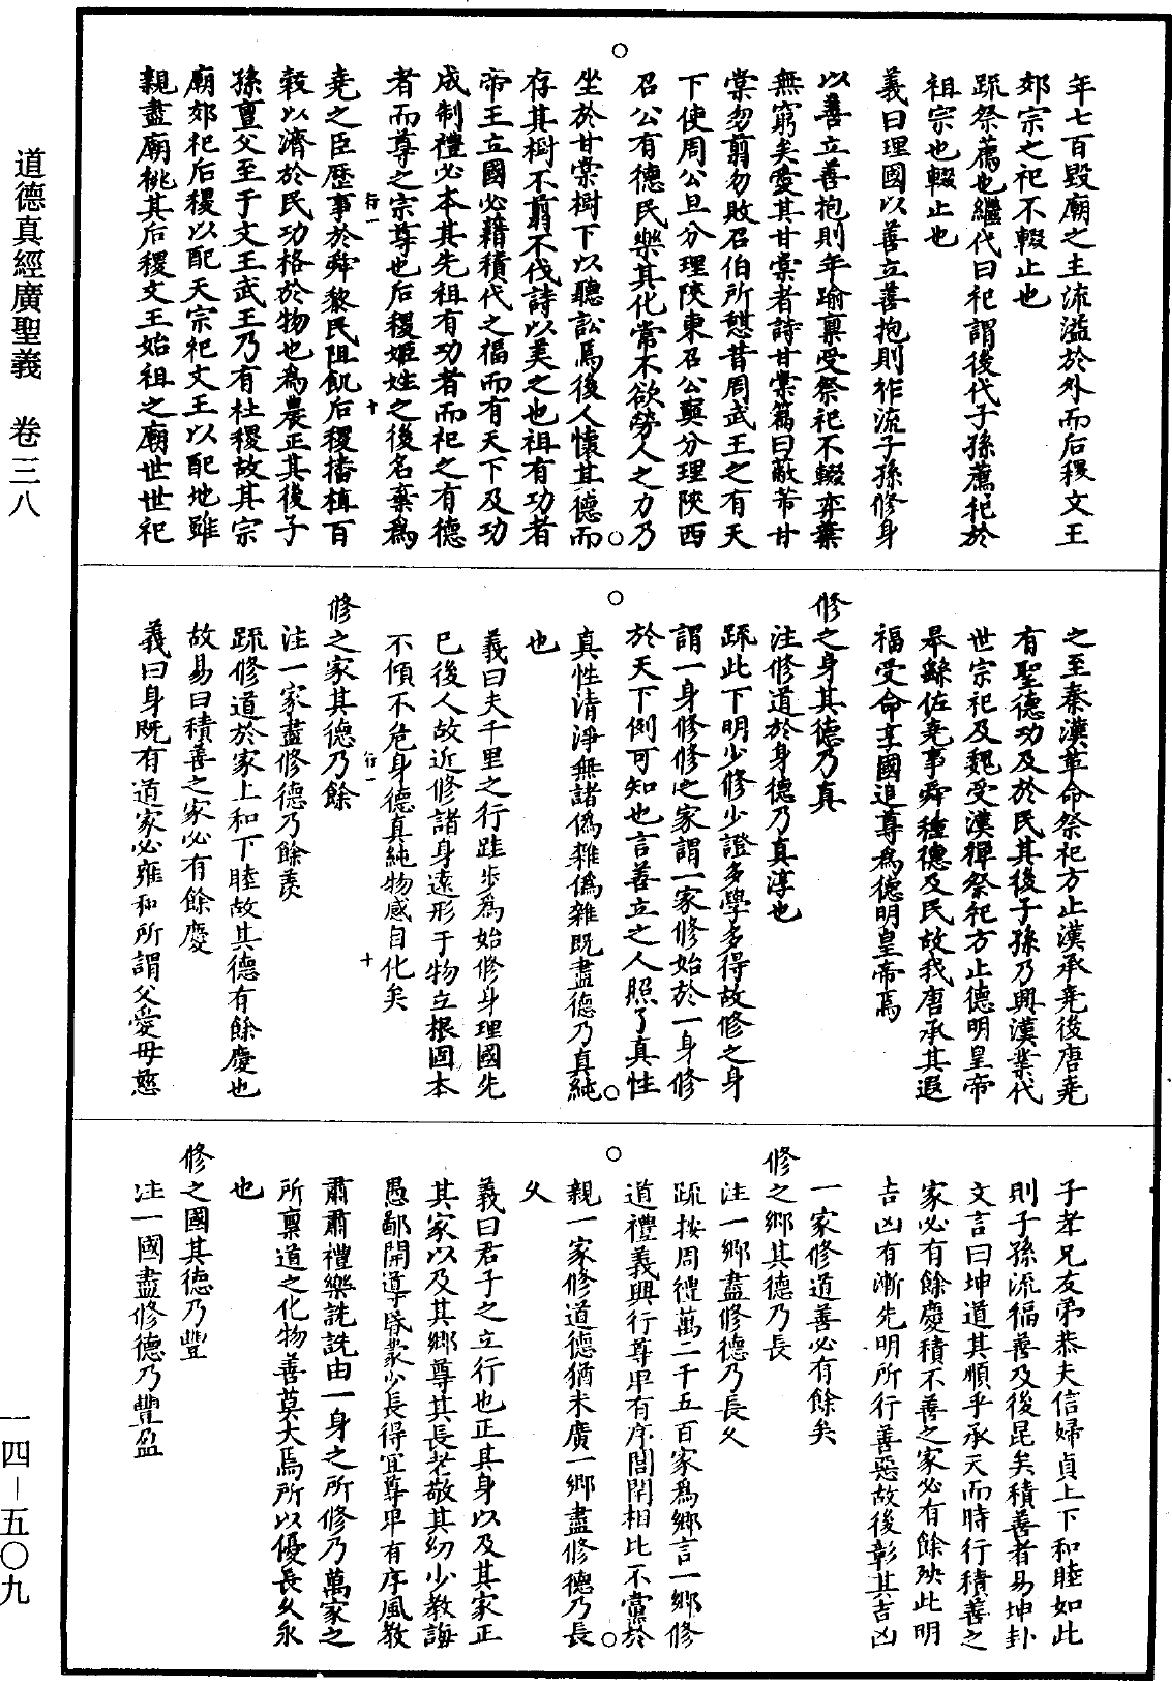 道德真經廣聖義　卷三八
一四—五〇九
年七百毀廟之主流溢於外而后稷文王
郊宗之祀不輟止也
疏祭薦也繼代曰祀謂後代子孫薦祀於
祖宗也輟止也
義曰理國以善立善抱則祚流子孫修身
以善立善抱則年踰稟受祭祀不輟弈葉
無窮矣愛其甘棠者詩甘棠篇曰蔽芾甘
棠勿翦勿敗召伯所憩昔周武王之有天
下使周公旦分理陝東召公奭分理陝西
召公有德民樂其化常不欲勞人之力乃
坐於甘棠樹下以聽訟焉後人懷其德而
存其樹不翦不伐詩以美之也祖有功者
帝王立國必藉積代之福而有天下及功
成制禮必本其先祖有功者而祀之有德
者而尊之宗尊也后稷姬姓之後名棄為
堯之臣歷事於舜黎民阻飢后稷播植百
穀以濟於民功格於物也為農正其後子
孫亶父至于文王武王乃有社稷故其宗
廟郊祀后稷以配天宗祀文王以配地雖
親盡廟祧其后稷文王始祖之廟世世祀
之至秦漢革命祭祀方止漢承堯後唐堯
有聖德功及於民其後子孫乃興漢業代
世宗祀及魏受漢禪祭祀方止德明皇帝
皋繇佐堯事舜種德及民故我唐承其遐
福受命享國追尊為德明皇帝焉
修之身其德乃真
注修道於身德乃真淳也
疏此下明少修少證多學多得故修之身
謂一身修修之家謂一家修始於一身修
於天下倒可知也言善立之人照了真性
真性清淨無諸偽雜偽雜既盡德乃真純
也
義曰夫千里之行跬步為始修身理國先
已後人故近修諸身遠形于物立根固本
不傾不危身德真純物感自化矣
修之家其德乃餘
注一家盡修德乃餘羨
疏修道於家上和下睦故其德有餘慶也
故易曰積善之家必有餘慶
義曰身既有道家必雍和所謂父愛母慈
子孝兄友弟恭夫信婦貞上下和睦如此
則子孫流福善及後昆矣積善者易坤卦
文言曰坤道其順乎承天而時行積善之
家必有餘慶積不善之家必有餘殃此明
吉凶有漸先明所行善惡故後彰其吉凶
一家修道善必有餘矣
修之鄉其德乃長
注一鄉盡修德乃長久
疏按周禮萬二千五百家為鄉言一鄉修
道禮義興行尊卑有序閭閈相比不黨於
親一家修道德猶未廣一鄉盡修德乃長
久
義曰君子之立行也正其身以及其家正
其家以及其鄉尊其長老敬其幼少教誨
愚鄙開導昏蒙少長得宜尊卑有序風教
肅肅禮樂詵詵由一身之所修乃萬家之
所稟道之化物善莫大焉所以優長久永
也
修之國其德乃豐
注一國盡修德乃豐盈